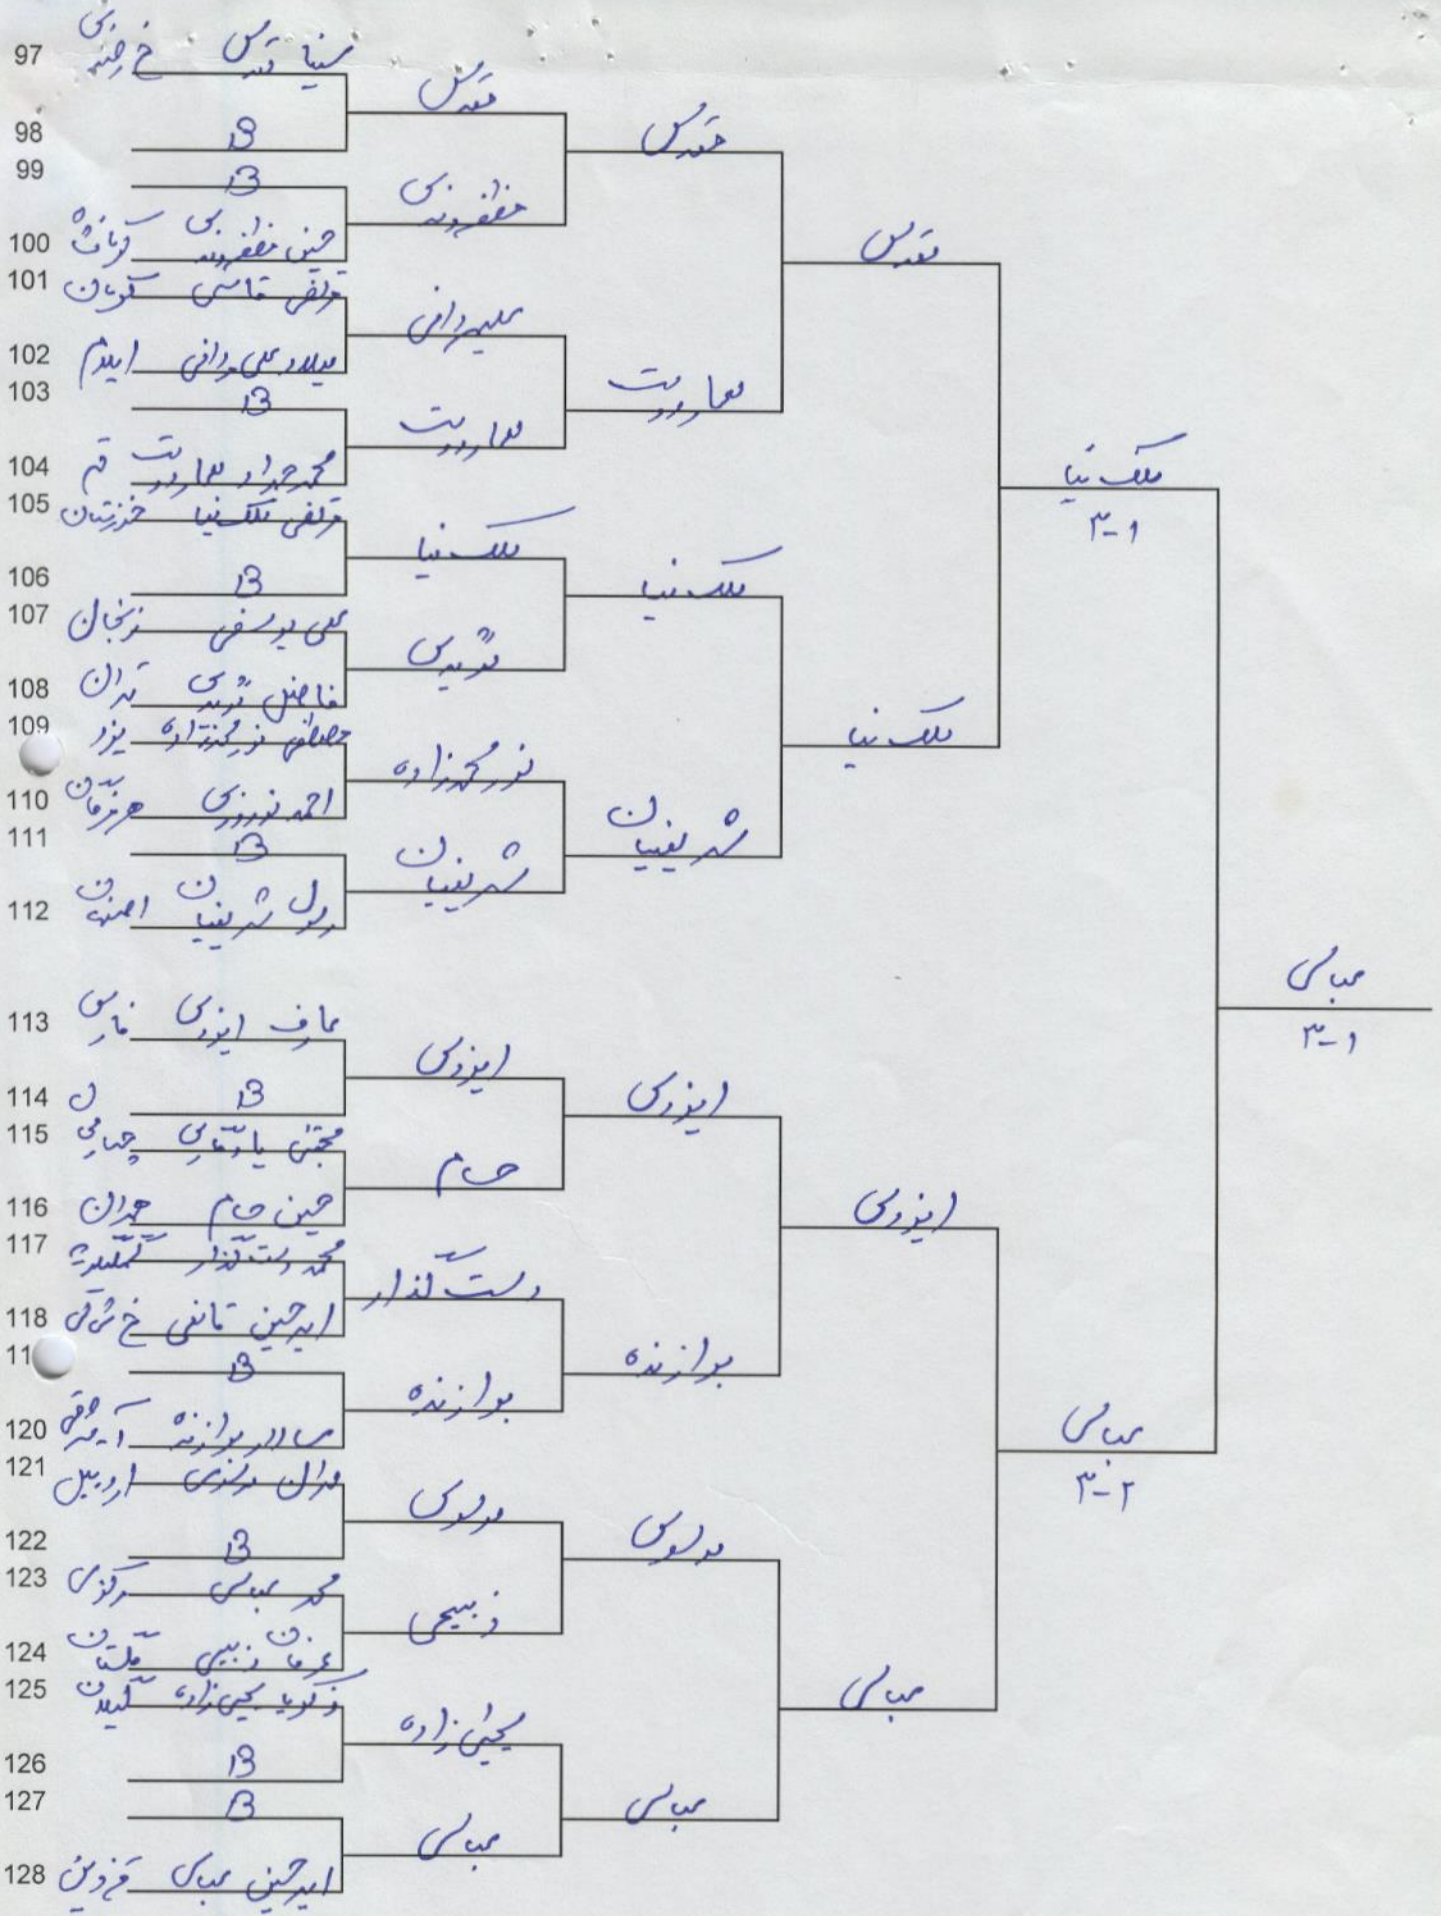 97 سینا مقدس خ رضوی
98 B
99 B
100 حسین مظفروندی کرمانشاه
101 مرتضی قاسمی کرمان
102 میلاد علی مرادانی ایلام
103 B
104 محمدجواد بهاردوست قم
105 مرتضی ملک نیا خوزستان
106 B
107 علی یوسفی زنجان
108 فاضل تهران
109 مصطفی نورمحمدزاده یزد
110 احمد نوروزی هرمزگان
111 B
112 رسول شریفیان اصفهان
113 عارف ایزدی فارس
114 B
115 مجتبی چهارمحال
116 حسین حسام همدان
117 محمد دست گذار
118 امیرحسین قانعی خ شرقی
11 B
120 سالار بوازنده آ-شرقی
121 موسوی اردبیل
122 B
123 محمد عباسی مرکزی
124 عرفان ذبیحی گلستان
125 زکریا یحیی زاده گیلان
126 B
127 B
128 امیرحسین عباسی قزوین
مقدس
مظفروندی
بهاردوست
ملک نیا
نورمحمدزاده
شریفیان
ایزدی
حسام
دست گذار
بوازنده
موسوی
ذبیحی
یحیی زاده
عباسی
مقدس
بهاردوست
ملک نیا
شریفیان
ایزدی
بوازنده
موسوی
عباسی
مقدس
ملک نیا
ایزدی
عباسی
ملک نیا
۳-۱
عباسی
۳-۲
عباسی
۳-۱